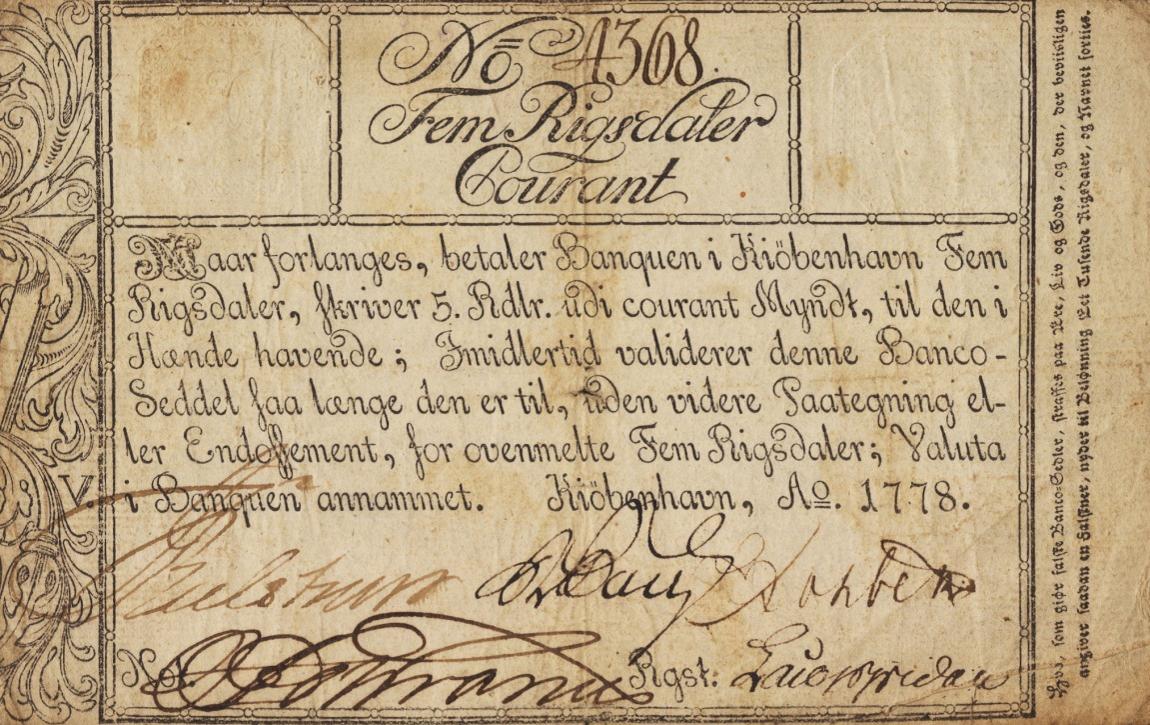 No 4368.
Fem Rigsdaler
Courant
Naar forlanges, betaler Banquen i Kiöbenhavn Fem
Rigsdaler, skriver 5. Rdlr. udi courant Myndt, til den i
Hænde havende; Imidlertid validerer denne Banco-
Seddel saa længe den er til, uden videre Paategning el-
ler Endossement, for ovenmelte Fem Rigsdaler; Valuta
i Banquen annammet. Kiöbenhavn, Ao. 1778.
V.
Not.
Rgst:
Hvo, som giør falske Banco-Sedler, straffes paa Ære, Liv og Gods, og den, der beviisligen
angiver saadan en Falskner, nyder til Belønning Eet Tusende Rigsdaler, og Navnet forties.